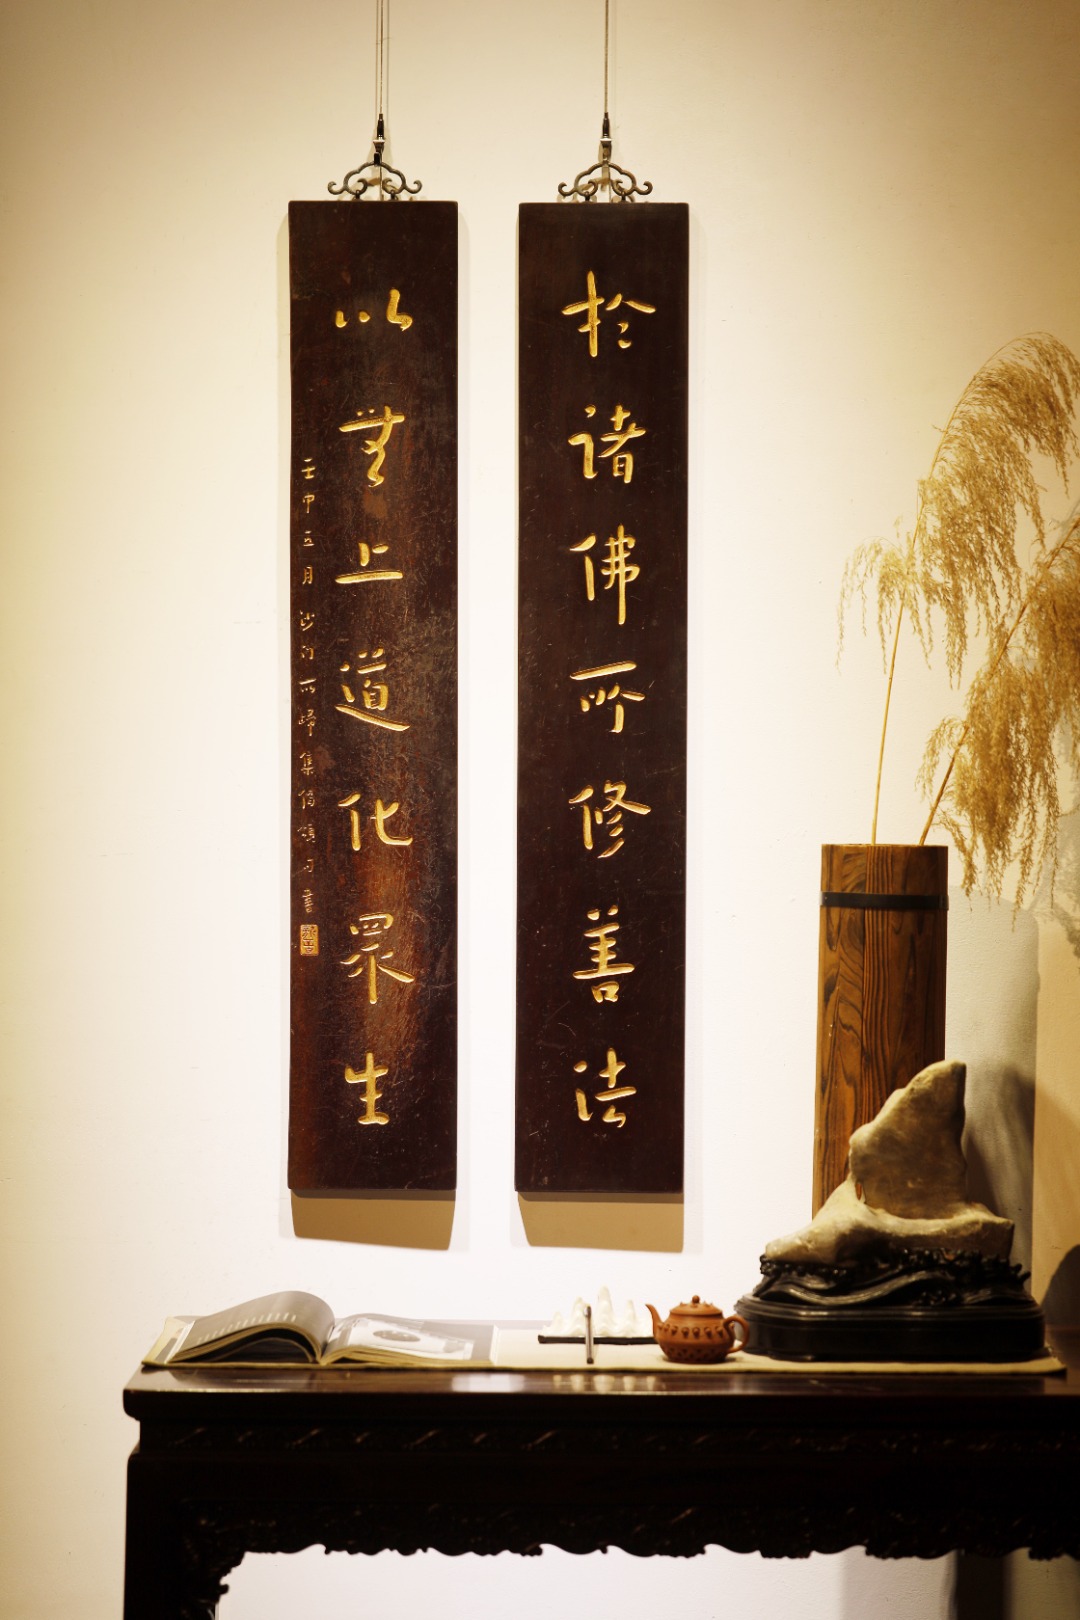 於諸佛所修善法
以無上道化眾生
壬申五月沙門一峰集偈頌月書